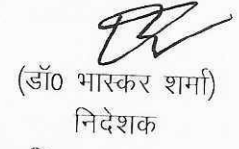 (डॉ0 भास्कर शर्मा)
निदेशक